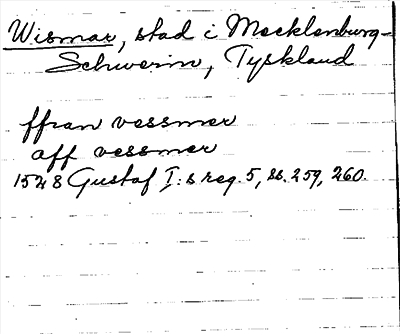 Wismar, stad i Mecklenburg-
Schwerin, Tyskland
ffran vessmer
aff vessmer
1528 Gustaf I:s reg. 5, ss. 259, 260.